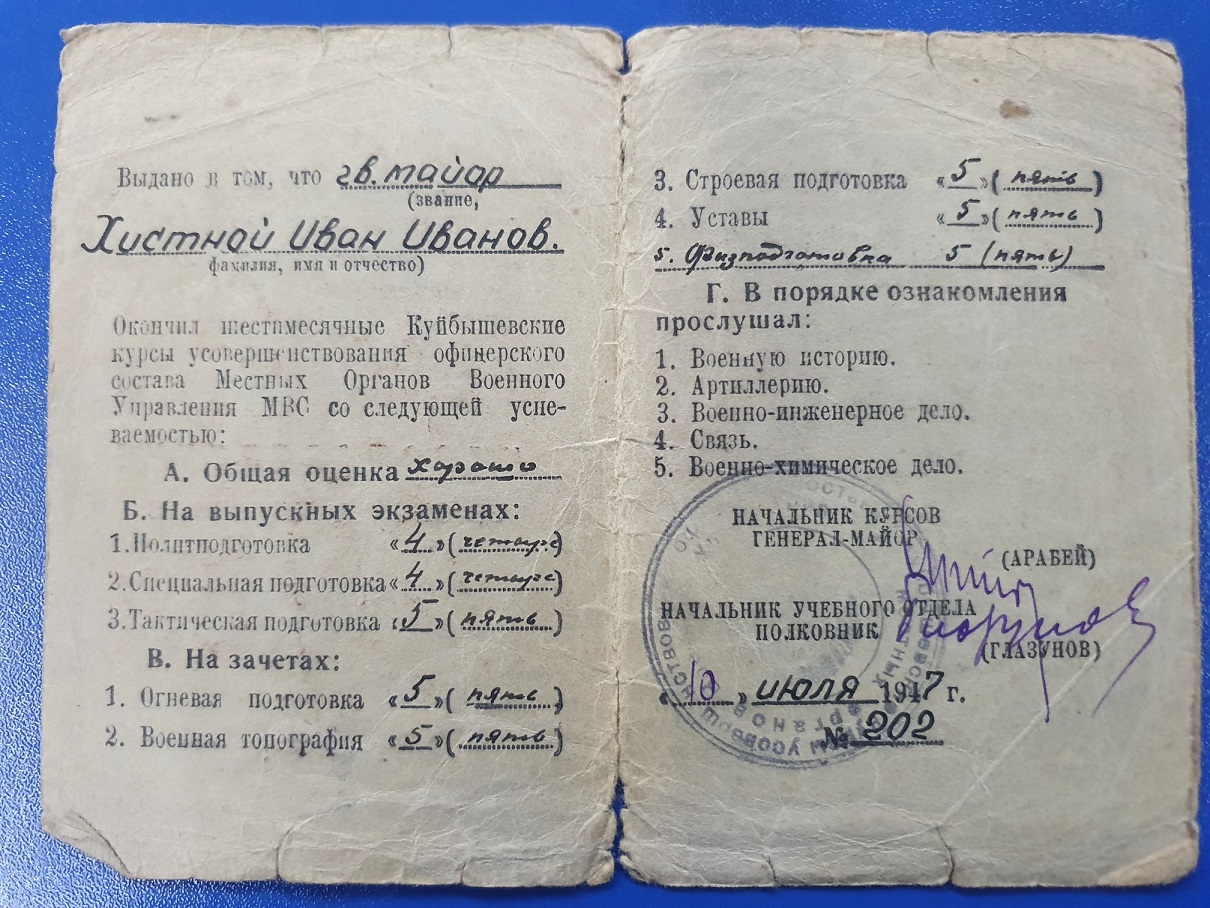 Выдано в том, что гв. майор
(звание,
Хистной Иван Иванов.
фамилия, имя и отчество)
Окончил шестимесячные Куйбышевские
курсы усовершенствования офицерского
состава Местных Органов Военного
Управления МВС со следующей успе-
ваемостью:
А. Общая оценка хорошо
Б. На выпускных экзаменах:
1. Политподготовка «4» (четыре)
2. Специальная подготовка «4» (четыре)
3. Тактическая подготовка «5» (пять)
В. На зачетах:
1. Огневая подготовка «5» (пять)
2. Военная топография «5» (пять)
3. Строевая подготовка «5» (пять)
4. Уставы «5» (пять)
5. Физподготовка 5 (пять)
Г. В порядке ознакомления
прослушал:
1. Военную историю.
2. Артиллерию.
3. Военно-инженерное дело.
4. Связь.
5. Военно-химическое дело.
НАЧАЛЬНИК КУРСОВ
ГЕНЕРАЛ-МАЙОР
(АРАБЕЙ)
НАЧАЛЬНИК УЧЕБНОГО ОТДЕЛА
ПОЛКОВНИК
(ГЛАЗУНОВ)
«10» июля 1947 г.
№ 202